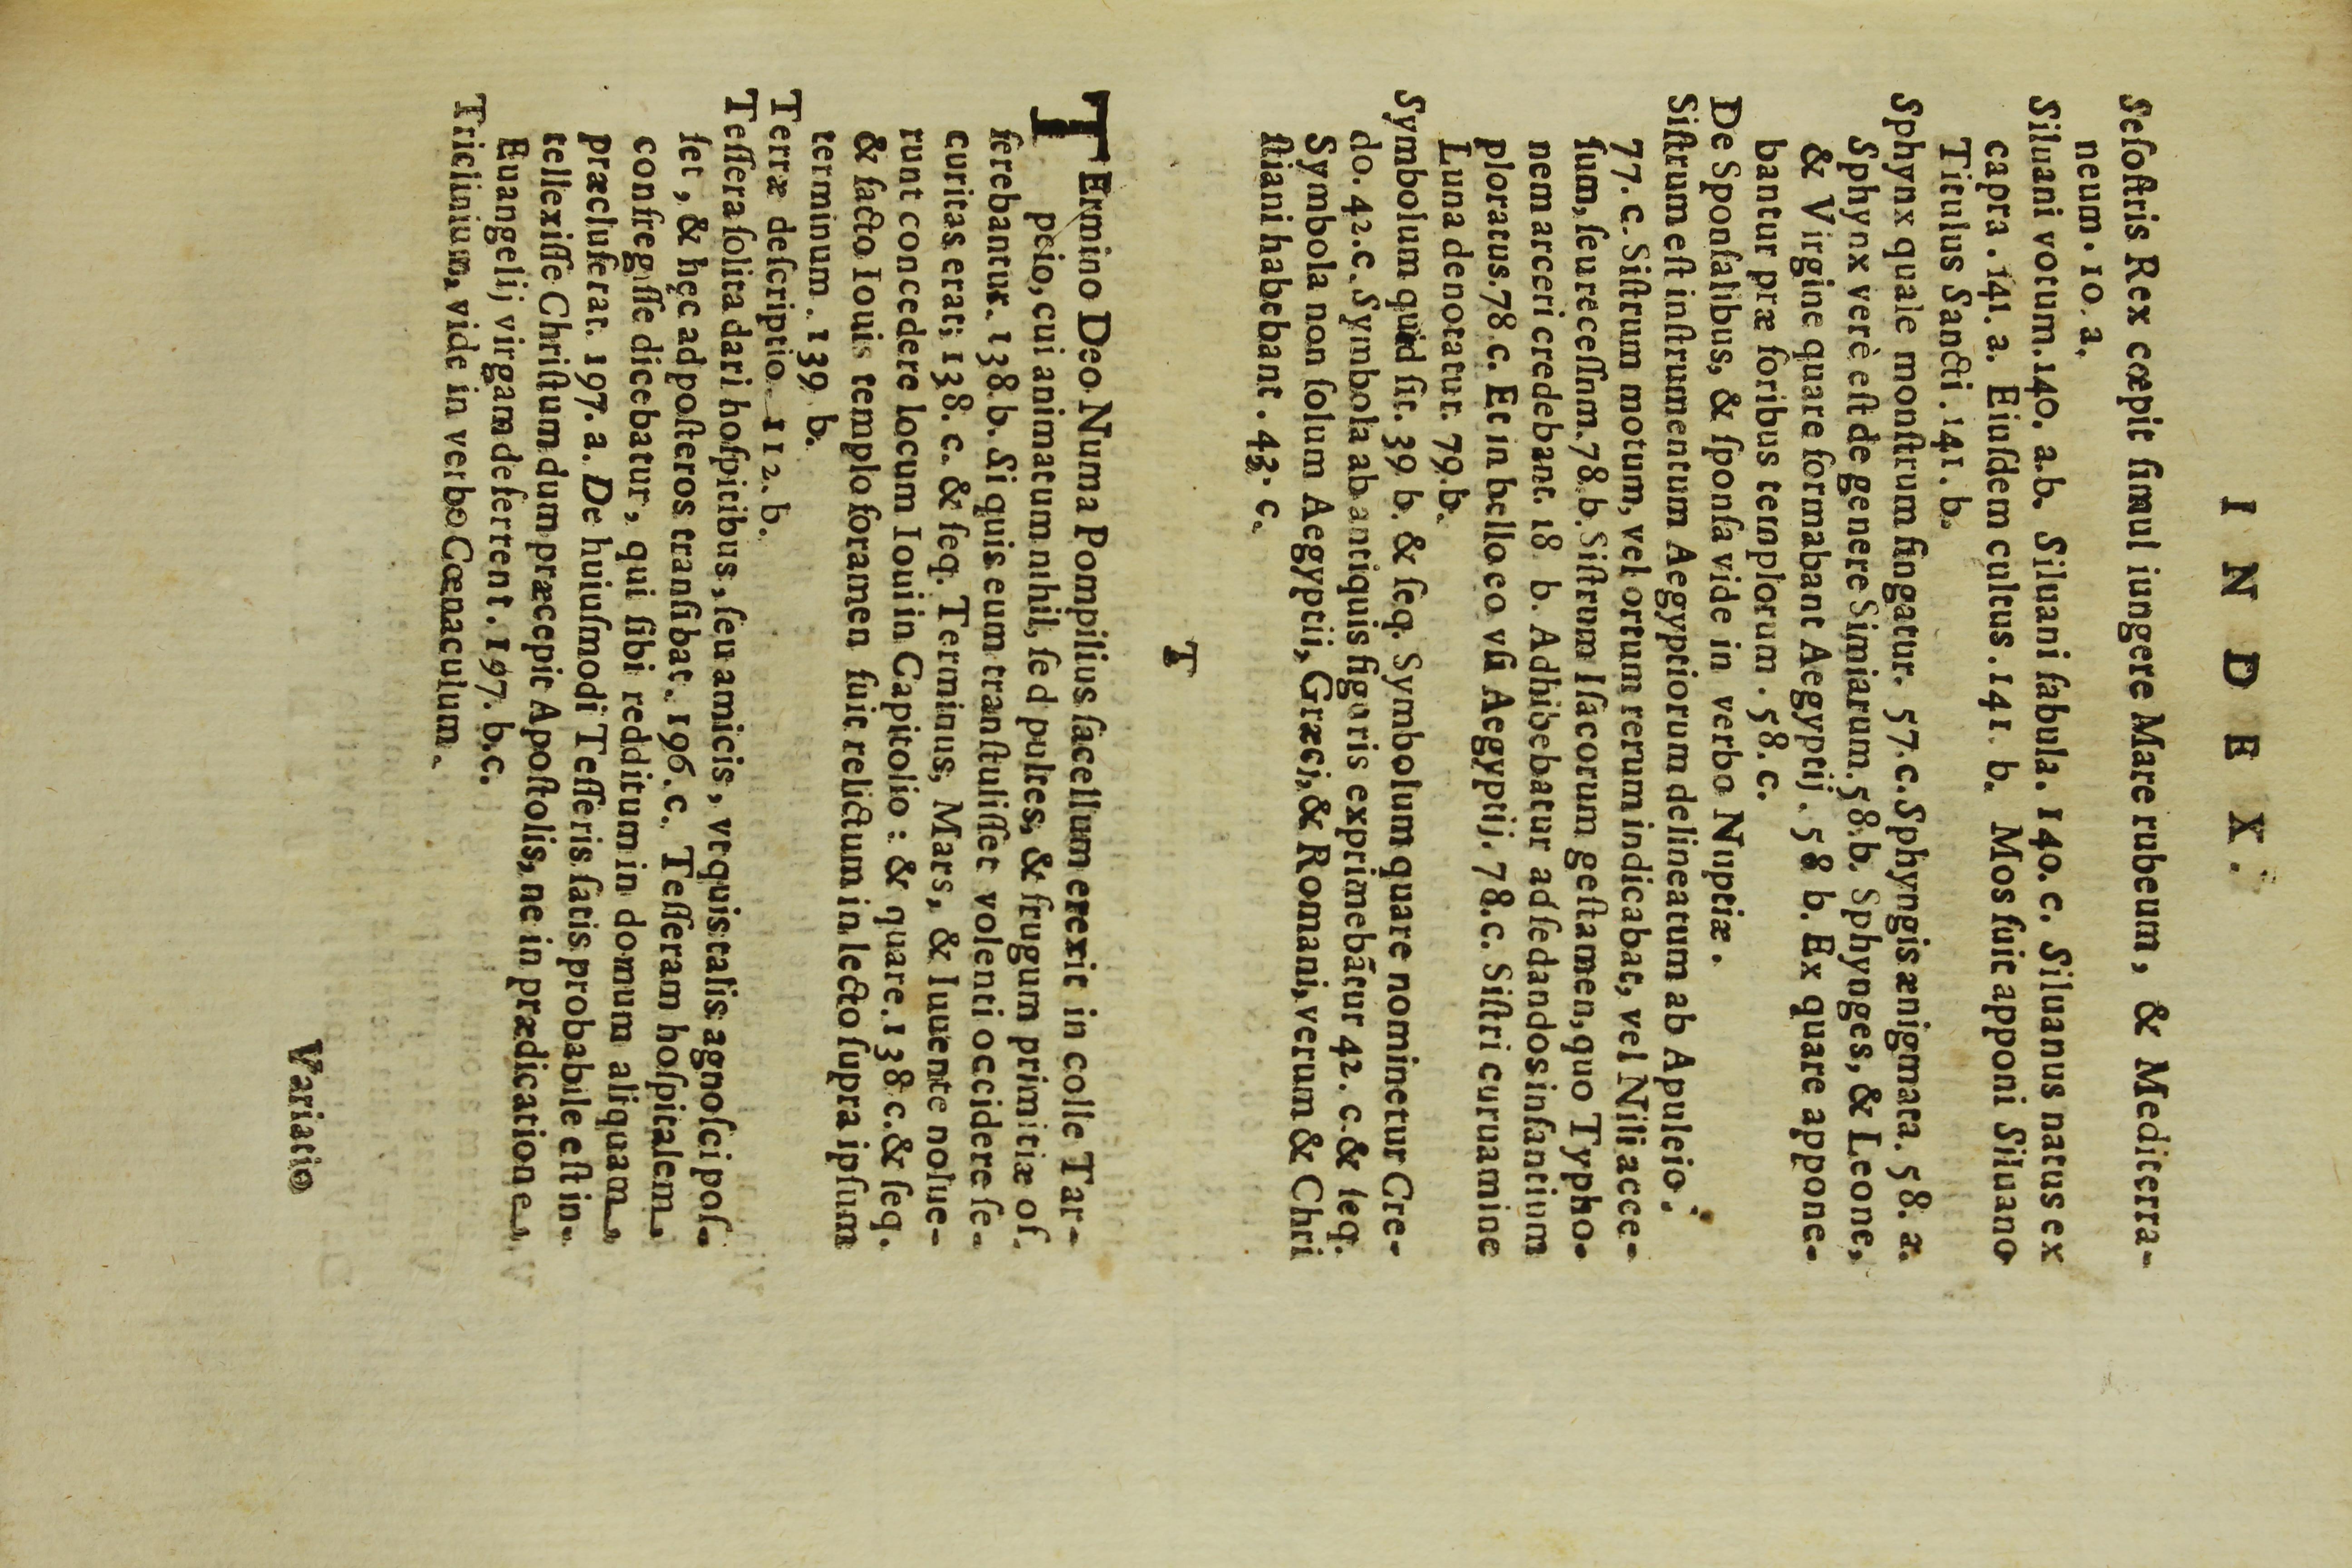 INDEX.
Seſoſtris Rex cœpit ſimul iungere Mare rubeum, & Mediterra-
neum. 10. a.
Siluani votum. 140. a.b. Siluani fabula. 140. c. Siluanus natus ex
capra. 141. a. Eiuſdem cultus. 141. b. Mos fuit apponi Siluano
Titulus Sancti. 141. b.
Sphynx quale monſtrum fingatur. 57. c. Sphyngis ænigmata. 58. a.
Sphynx verè eſt de genere Simiarum. 58. b. Sphynges, & Leone,
& Virgine quare formabant Aegyptij. 58 b. Ex quare appone-
bantur præ foribus templorum. 58. c.
De Sponſalibus, & ſponſa vide in verbo Nuptiæ.
Siſtrum eſt inſtrumentum Aegyptiorum delineatum ab Apuleio.
77. c. Siſtrum motum, vel ortum rerum indicabat, vel Nili acce-
ſum, ſeu receſſnm. 78. b. Siſtrum Iſacorum geſtamen, quo Typho-
nem arceri credebant. 18 b. Adhibebatur ad ſedandos infantium
ploratus. 78 c. Et in bello eo vſi Aegyptij. 78. c. Siſtri curuamine
Luna denotatur. 79. b.
Symbolum quid ſit. 39 b. & ſeq. Symbolum quare nominetur Cre-
do. 42. c. Symbola ab antiquis figuris exprimebātur 42. c. & ſeq.
Symbola non ſolum Aegyptii, Græci, & Romani, verum & Chri
ſtiani habebant. 43. c.
T
TErmino Deo Numa Pompilius ſacellum erexit in colle Tar-
peio, cui animatum nihil, ſed pultes, & frugum primitiæ of.
ferebantur. 138 b. Si quis eum tranſtuliſſet volenti occidere ſe-
curitas erat; 138. c. & ſeq. Terminus, Mars, & Iuuente nolue-
runt concedere locum Ioui in Capitolio: & quare. 138 c. & ſeq.
& facto Iouis templo foramen fuit relictum in lecto ſupra ipſum
terminum. 139 b.
Terræ deſcriptio. 112. b.
Teſſera ſolita dari hoſpitibus, ſeu amicis, vt quis talis agnoſci poſ-
ſet, & hęc ad poſteros tranſibat. 196. c. Teſſeram hoſpitalem
confregiſſe dicebatur, qui ſibi redditum in domum aliquam,
præcluſerat. 197. a. De huiuſmodi Teſſeris ſatis probabile eſt in-
tellexiſſe Chriſtum dum præcepit Apoſtolis, ne in prædicatione,
Euangelij virgam deferrent. 197. b.c.
Triclinium, vide in verbo Cœnaculum.
Variatio